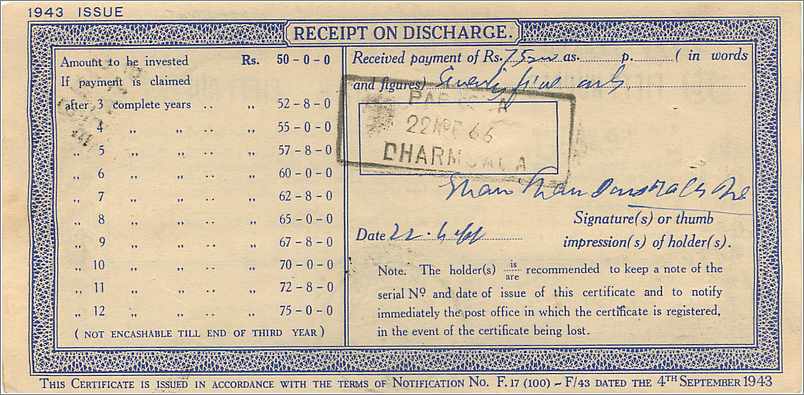 1943 ISSUE
RECEIPT ON DISCHARGE.
Amount to be invested Rs. 50-0-0
If payment is claimed
after 3 complete years .. „ 52-8-0
„ 4 „ „ .. „ 55-0-0
„ 5 „ „ .. „ 57-8-0
„ 6 „ „ .. „ 60-0-0
„ 7 „ „ .. „ 62-8-0
„ 8 „ „ .. „ 65-0-0
„ 9 „ „ .. „ 67-8-0
„ 10 „ „ .. „ 70-0-0
„ 11 „ „ .. „ 72-8-0
„ 12 „ „ .. „ 75-0-0
( NOT ENCASHABLE TILL END OF THIRD YEAR )
Received payment of Rs. 75 as. p. ( in words
and figures) Seventy five only
22 APR 66
DHARMSALA
Signature(s) or thumb
Date 22.4.66 impression(s) of holder(s).
Note. The holder(s) is/are recommended to keep a note of the
serial No and date of issue of this certificate and to notify
immediately the post office in which the certificate is registered,
in the event of the certificate being lost.
THIS CERTIFICATE IS ISSUED IN ACCORDANCE WITH THE TERMS OF NOTIFICATION No. F.17 (100) - F/43 DATED THE 4TH SEPTEMBER 1943